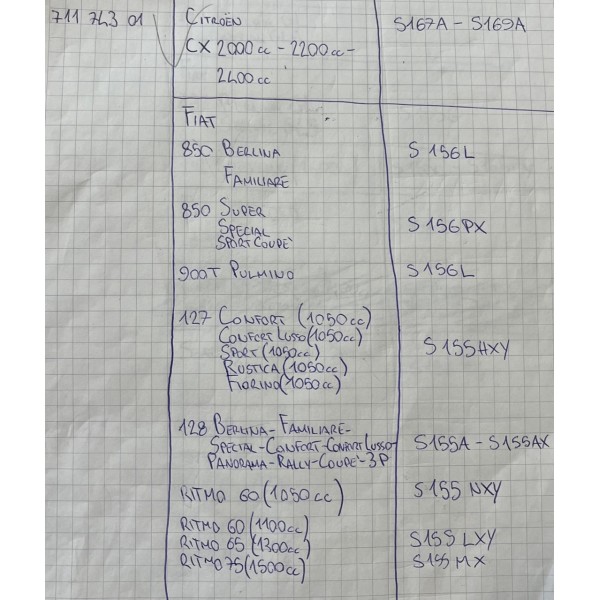 711 743 01 CITROËN S167A - S169A
CX 2000cc - 2200cc -
2400cc
FIAT
850 BERLINA S 156L
FAMILIARE
850 SUPER
SPECIAL S 156PX
SPORT COUPE'
900T PULMINO S156L
127 CONFORT (1050cc)
CONFORT LUSSO (1050cc)
SPORT (1050cc) S 155HXY
RUSTICA (1050cc)
FIORINO (1050cc)
128 BERLINA - FAMILIARE -
SPECIAL - CONFORT - CONFORT LUSSO - S155A - S155AX
PANORAMA - RALLY - COUPE' - 3P
RITMO 60 (1050cc) S155 NXY
RITMO 60 (1100cc)
RITMO 65 (1300cc) S155 LXY
RITMO 75 (1500cc) S155 MX